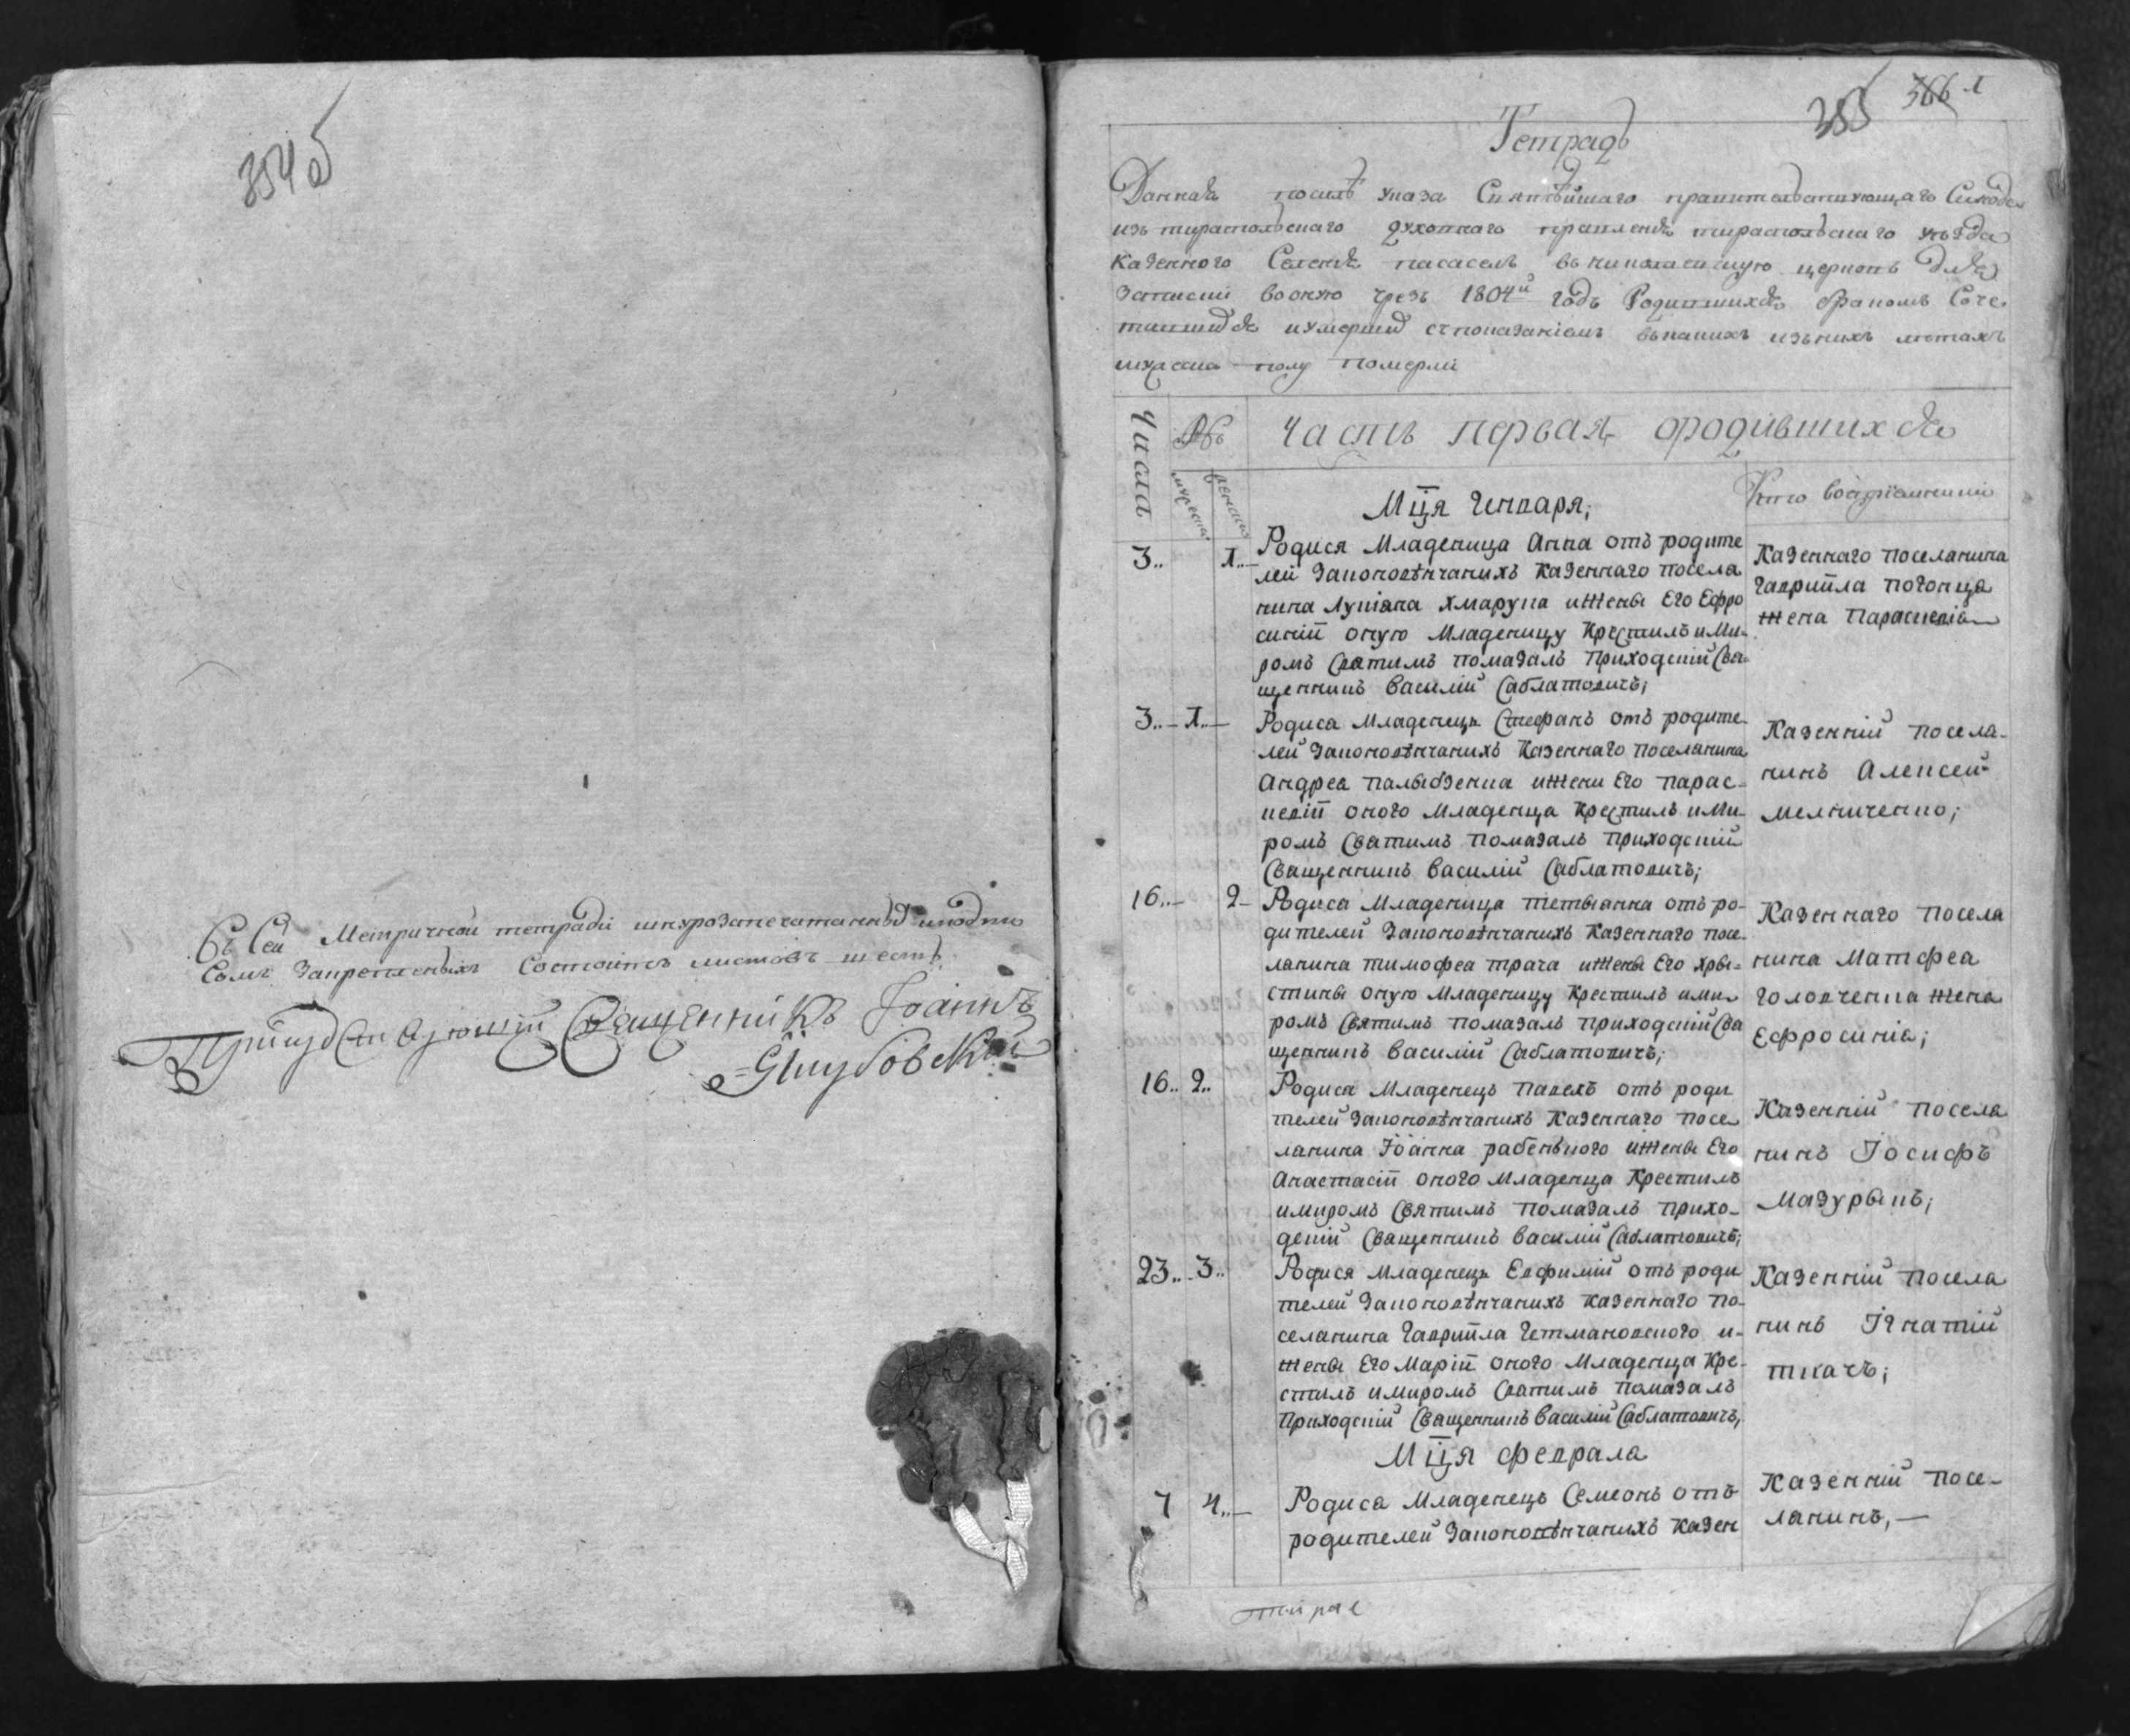 354 об
Въ Сей Метричной тетради шнурозапечатанныхъ
Сомъ Запрепленыхъ Состоитъ листовъ шесть
Священникъ Іоаннъ
355 366 1
Тетрадь
Данная посилѣ указа Святѣйшаго правительствующаго Синода
изъ тираспольского духовнаго правленія тираспольского уѣзда
Казенного Селенія въ николаевскую церковъ для
Записки во оную чрезъ 1804й годъ Родившихся бракомъ Соче
тавшихся и умершихъ спопазаніемъ въ какихъ изънихъ летахъ
полу померли
Числа
№
Часть первая ородившихся
мужеска
женска
Мця Генваря;
Кто воспріемники
3.. 1..
Родися Младеница Анна отъ родите
лей Законовѣнчанихъ Казеннаго посела
нина Лукіана Хмарука иЖены Его Ефро
синіи оную Младеницу Крестилъ иМи-
ромъ Святимъ помазалъ Приходскій Свя-
щенникъ Василій Саблатовичъ;
Казеннаго поселанина
Гавриила погонца
Жена Параскевіа
3.. 1..
Родиса Младенецъ Стефанъ отъ родите-
лей Законовѣнчанихъ Казеннаго поселанина
Андреа иЖени Его Парас-
кевіи оного Младенца Крестилъ иМи-
ромъ Сватимъ Помазалъ Приходскій
Сващенникъ Василій Саблатовичъ;
Казенній посела-
нинъ Алексей
мелниченко;
16.. 2
Родиса Младеница Тетыанна отъ ро-
дителей Законовѣнчанихъ Казеннаго посе-
ланина Тимофеа трача иЖены Его Хры-
стины оную Младеницу Крестилъ ими-
ромъ Святимъ помазалъ приходскій Сва
щенникъ Василій Саблатовичъ;
Казеннаго посела
нина Матфеа
головченка Жена
Ефросиніа;
16.. 2..
Родися Младенецъ Павелъ отъ роди
телей Законовѣнчанихъ Казеннаго посе
ланина Іоанна рабенького иЖены Его
Анастасіи оного Младенца Крестилъ
имиромъ Святимъ помазалъ прихо-
дскій Сващенникъ Василій Саблатовичъ;
Казенній посела
нинъ Іосифъ
мазурыкъ;
23.. 3..
Родися Младенецъ Евфимій отъ роди
телей Законовѣнчанихъ Казеннаго по-
селанина Гавриила Гетмановского и-
Жены Его Маріи оного Младенца Кре-
стилъ имиромъ Сватимъ помазалъ
Приходскій Сващенникъ Василій Саблатовичъ,
Казенній посела
нинъ Ігнатій
ткачъ;
Мця Феврала
7 4..
Родиса Младенецъ Семеонъ отъ
родителей Законовѣнчанихъ Казен
Казенній посе-
ланинъ,